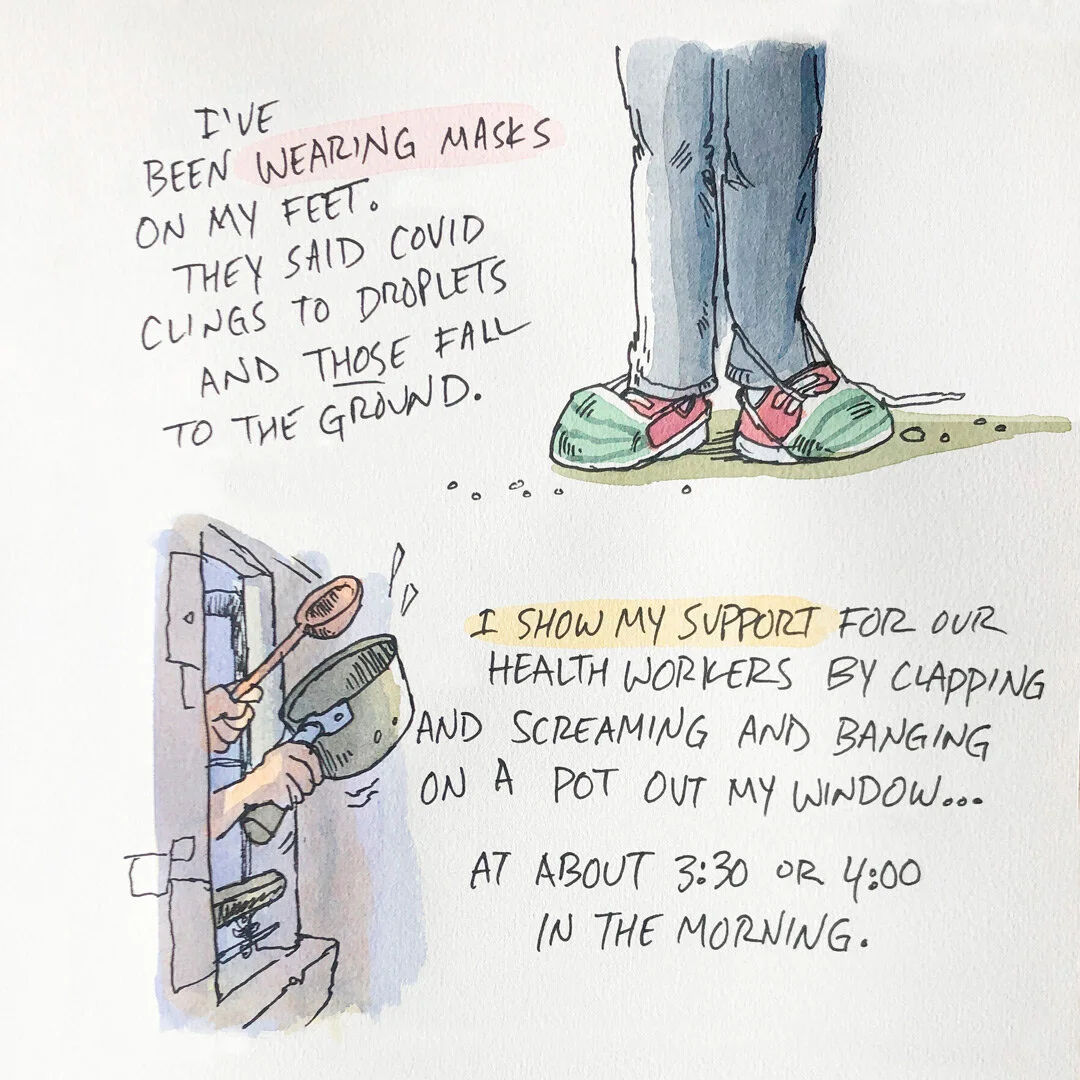 I'VE
BEEN WEARING MASKS
ON MY FEET.
THEY SAID COVID
CLINGS TO DROPLETS
AND THOSE FALL
TO THE GROUND.
I SHOW MY SUPPORT FOR OUR
HEALTH WORKERS BY CLAPPING
AND SCREAMING AND BANGING
ON A POT OUT MY WINDOW...
AT ABOUT 3:30 OR 4:00
IN THE MORNING.